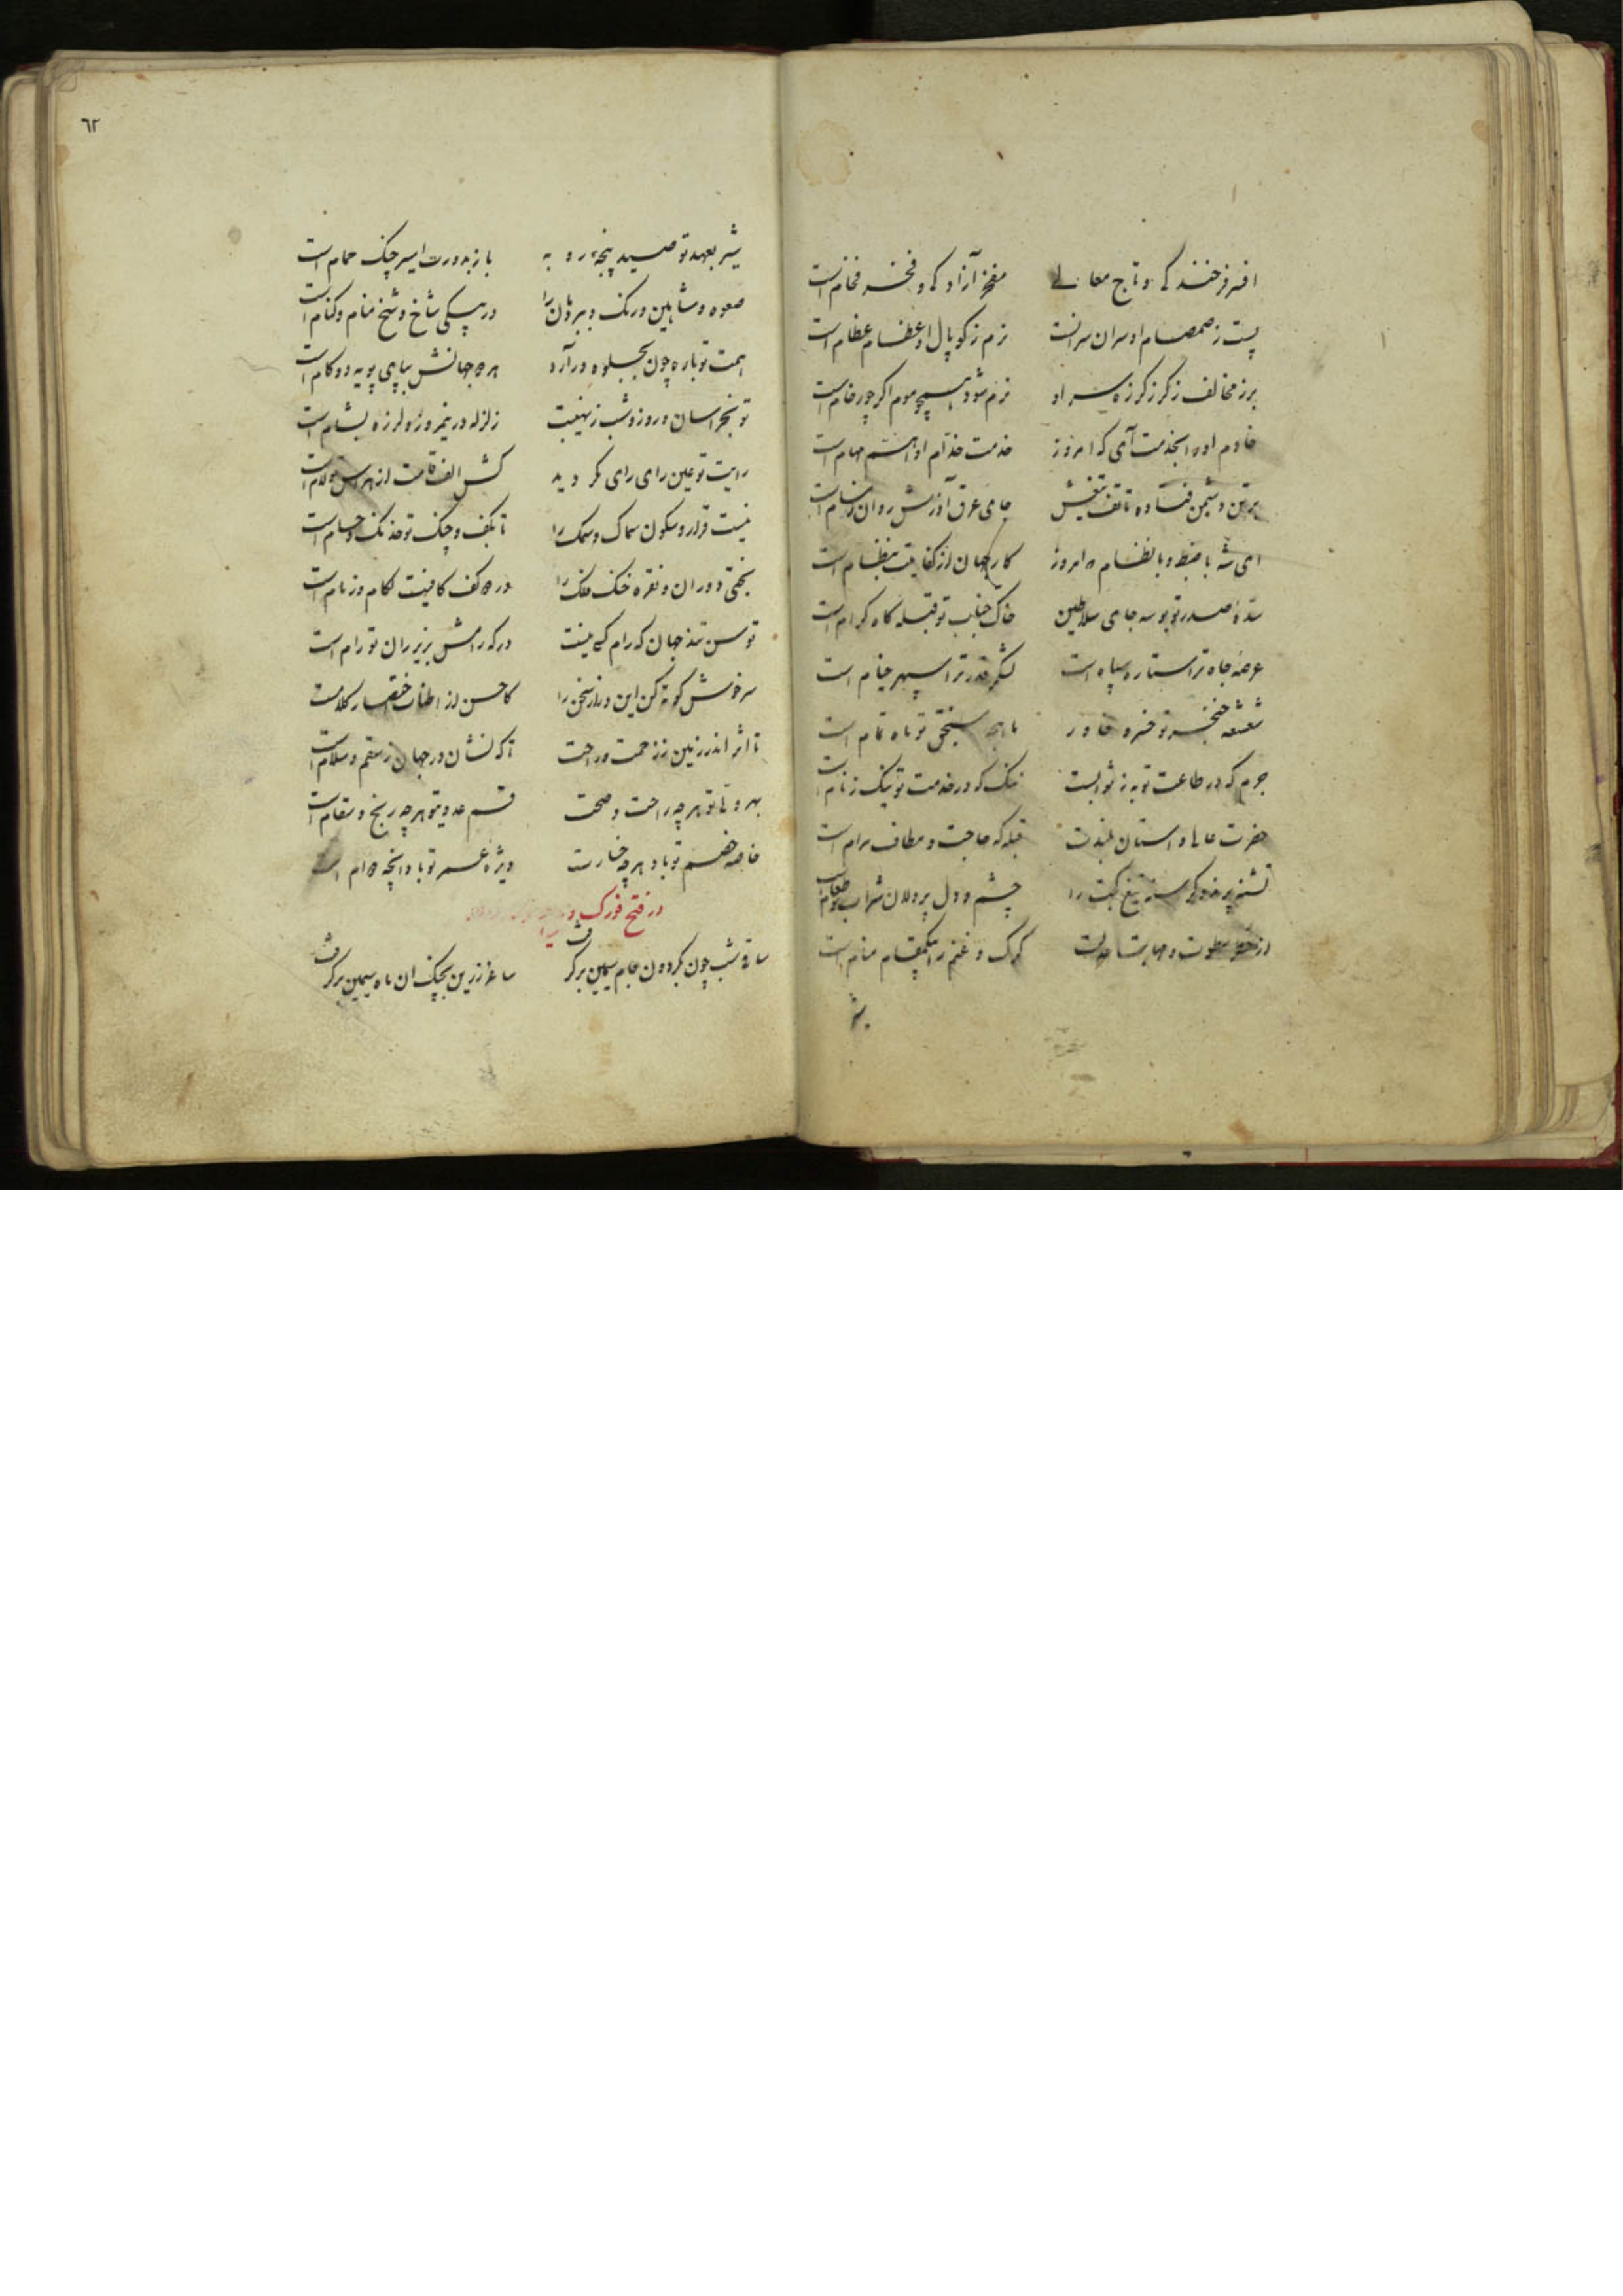 افسر فرخندگی و تاج معالی مفخر آزادگی و فخر فخام است
پست ز صمصام او سران سرانست نرم ز کوپال او عظام عظام است
برز مخالف ز کرز کرزه سر او نرم شود همچو موم اگر چو رخام است
خادم او را بخدمت آی که امروز خدمت خدام او اهم مهام است
بر تن دشمن فتاده تا تف تیغش جای عرق آذرش روان ز مسام است
ای شه با ضبط و با نظام که امروز کار جهان از کفایتت بنظام است
سده صدر تو بوسه جای سلاطین خاک جناب تو قبله گاه کرام است
عرضه جاه ترا ستاره سپاه است لشکر قدر ترا سپهر خیام است
شعشعه خنجر تو خسرو خاور ماهچه سنجق تو ماه تمام است
جرم که در طاعت تو به ز ثوابست ننگ که در خدمت تو نیک ز نام است
حضرت عالی و استان بلندت قبله که حاجت و مطاف مرام است
تیغ کجت را چشم و دل پردلان شراب و طعام است
از سطوت و مهابت عدلت کرک و غنم را یکمقام منام است
شیر
٦٢
شیر بعهد تو صید پنجه روبه باز بدورت اسیر چنک حمام است
صعوه و شاهین و رنک و ببر دمان را در یکی شاخ و شخ منام و کنام است
همت تو باره چون بجلوه درآرد هر دو جهانش بپای پویه دو کام است
تو بخراسان و روز و شب ز نهیبت زلزله در نیمروز و لرزه بشام است
رایت تو عین رای رای نکردید کش الف قامت از هراس تو لام است
نیست قرار و سکون سماک و سمک را تا بکف و چنک تو خدنک و حسام است
بختی دوران و نقره خنک فلک را در دو کف کافیت لکام و زمام است
توسن تند جهان که رام کسی نیست در که رامش بزیر ران تو رام است
سرخوش کوته کن این دراز سخن را کاحسن از اطناب اختصار کلامست
تا اثر اندر زمین ز زحمت و راحت تا که نشان در جهان ز سقم و سلام است
بهر ولی تو هر چه راحت و صحت قسم عدوی تو هر چه رنج و سقام است
خاصه خصم تو باد هر چه خسارت ویژه عمر تو باد آنچه دوام است
در فتح فورک
ساقی شب چون بکردون جام سیمین برگرفت ساغر زرین بچنک ان ماه سیمین برگرفت